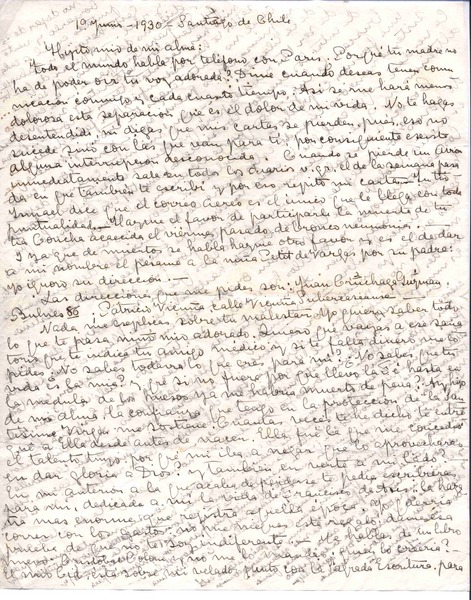 19 Junio - 1930 - Santiago de Chile
Hijito mio de mi alma:
Todo el mundo habla por teléfono con Paris. Porqué tu madre no
ha de poder oir tu voz adorada? Dime cuándo deseas tener comu-
nicación conmigo y cada cuanto tiempo. Así se me hará menos
dolorosa esta separación que és el dolor de mi vida. No te hagas
desentendido, ni digas que mis cartas se pierden, pués, eso no
sucede sinó con las que van para ti; por consiguiente existe
alguna interrupción desconocida. Cuando se pierde un aéreo
inmediatamente sale en todos los diarios v. gr. el de la semana pasa-
da en que también te escribí y por eso repito mi carta. Tu tío
Ismael dice que el correo aéreo es el único que le llega con toda
puntualidad. - Hazme el favor de participarle la muerte de tu
tía Concha acaecida el viernes pasado de bronco neumonia.
Y ya que de muertos se habla hazme otro favor y es el de dar
a mi nombre el pésame a la noña Petit de Vargas por su padre;
yo ignoro su dirección. -
Las direcciones que me pides son: Juan Cruchaga Guzman
Bulnes 80 Patricio Vicuña, calle Vicuña Subercaseaux. -
Nada me explicas sobre tu malestar. Yo quiero saber todo
lo que te pasa, niño mio adorado. Quiero que vayas a ese sana
torio que te indica tu amigo médico y si te falta dinero me lo
pides. No sabes todavía lo que eres para mi? No sabes que tu
vida és la mia? y que si no fuera por que llevo la Fé hasta en
la médula de los huesos ya me habría muerto de pena? Ay hijo
de mi alma! la confianza que tengo en la protección de la San-
tisima Virgen me sostiene. Cuantas veces te he dicho te entre
gué a Ella desde antes de nacer. Ella fué la que me concedió
el talento tuyo por que mi iba a negar que lo aprovecharas
en dar gloria a Dios? y también en verte a mi lado?
En mi anterior a la que acaba de perderse te pedía escribieras
para mi, dedicada a mi la vida de Francisco de Asis la haza
ña más enorme que registra aquella época. Yo quiero
correr con los gastos; no me niegues este regalo, dame esa
prueba de que no te soy indiferente. - Me hablas de un libro
nuevo, Cristobal Colon, y no me lo mandas, quién lo creería?
El mio Cid está sobre mi velador junto con la Sagrada Escritura, para